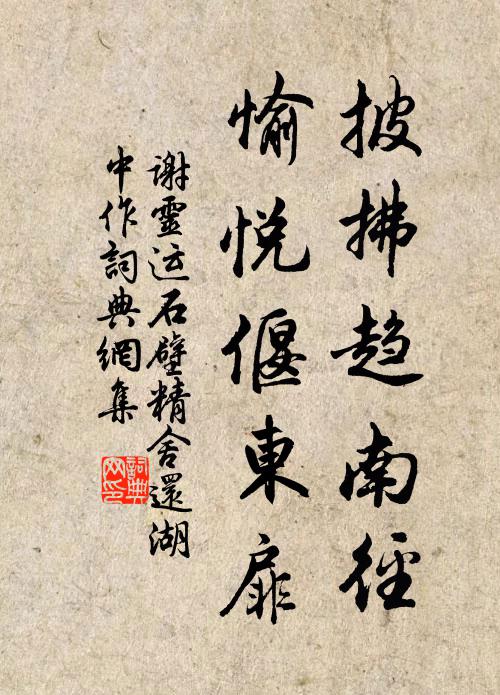 披拂趋南径
愉悦偃東扉
谢靈运石壁精舍還湖
中作詞典網集
詞典
网印